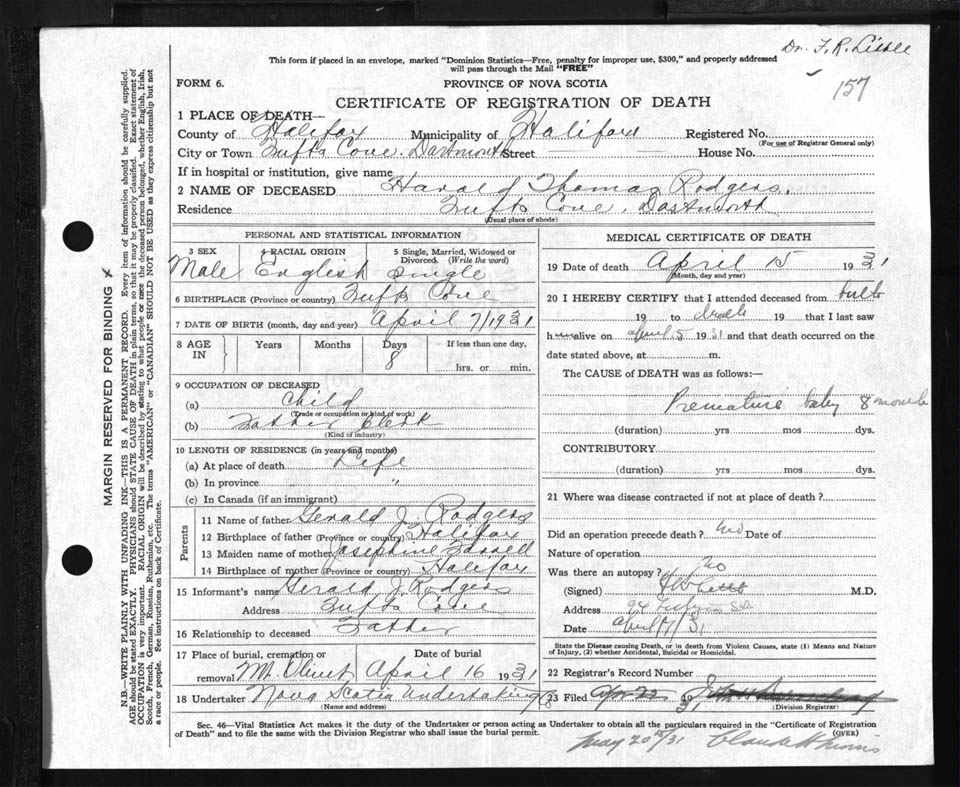 Dr. F. R. Little
This form if placed in an envelope, marked "Dominion Statistics—Free, penalty for improper use, $300," and properly addressed
will pass through the Mail "FREE"
157
FORM 6.
PROVINCE OF NOVA SCOTIA
CERTIFICATE OF REGISTRATION OF DEATH
1 PLACE OF DEATH—
County of Halifax Municipality of Halifax Registered No.
(For use of Registrar General only)
City or Town Tufts Cove. Dartmouth Street House No.
If in hospital or institution, give name
2 NAME OF DECEASED Harald Thomas Rodgers.
Residence Tufts Cove, Dartmouth
(Usual place of abode)
PERSONAL AND STATISTICAL INFORMATION
3 SEX 4 RACIAL ORIGIN 5 Single, Married, Widowed or Divorced. (Write the word)
Male English Single
6 BIRTHPLACE (Province or country) Tufts Cove
7 DATE OF BIRTH (month, day and year) April 7/1931
8 AGE IN Years Months Days If less than one day,
8 hrs. or min.
9 OCCUPATION OF DECEASED
(a) Child
(Trade or occupation or kind of work)
(b) Father Clerk
(Kind of industry)
10 LENGTH OF RESIDENCE (in years and months)
(a) At place of death Life
(b) In province "
(c) In Canada (if an immigrant)
Parents
11 Name of father Gerald J. Rodgers
12 Birthplace of father (Province or country) Halifax
13 Maiden name of mother Josephine Farrell
14 Birthplace of mother (Province or country) Halifax
15 Informant's name Gerald J. Rodgers
Address Tufts Cove
16 Relationship to deceased Father
17 Place of burial, cremation or removal Date of burial
Mt. Olivet April 16 1931
18 Undertaker Nova Scotia Undertaking Co
(Name and address)
MEDICAL CERTIFICATE OF DEATH
19 Date of death April 15 1931
(Month, day and year)
20 I HEREBY CERTIFY that I attended deceased from birth
19 to death 19 that I last saw
h alive on April 5 1931 and that death occurred on the
date stated above, at m.
The CAUSE of DEATH was as follows:—
Premature baby 8 months
(duration) yrs mos dys.
CONTRIBUTORY
(duration) yrs mos dys.
21 Where was disease contracted if not at place of death?
Did an operation precede death? no Date of
Nature of operation
Was there an autopsy? No
(Signed) M.D.
Address 94
Date April 17/31
State the Disease causing Death, or in death from Violent Causes, state (1) Means and Nature
of Injury, (2) whether Accidental, Suicidal or Homicidal.
22 Registrar's Record Number
23 Filed Apr. 22 1931
(Division Registrar)
Sec. 46—Vital Statistics Act makes it the duty of the Undertaker or person acting as Undertaker to obtain all the particulars required in the "Certificate of Registration
of Death" and to file the same with the Division Registrar who shall issue the burial permit.
(OVER)
May 20th/31 Claude H Morris
MARGIN RESERVED FOR BINDING
N.B.—WRITE PLAINLY WITH UNFADING INK—THIS IS A PERMANENT RECORD. Every item of information should be carefully supplied.
AGE should be stated EXACTLY. PHYSICIANS should STATE CAUSE OF DEATH in plain terms, so that it may be properly classified. Exact statement of
OCCUPATION is very important. RACIAL ORIGIN will be described by stating to what people or race the deceased person belonged, whether English, Irish,
Scotch, French, German, Russian, Ruthenian, etc. The terms "AMERICAN" or "CANADIAN" SHOULD NOT BE USED as they express citizenship but not
a race or people. See instructions on back of Certificate.